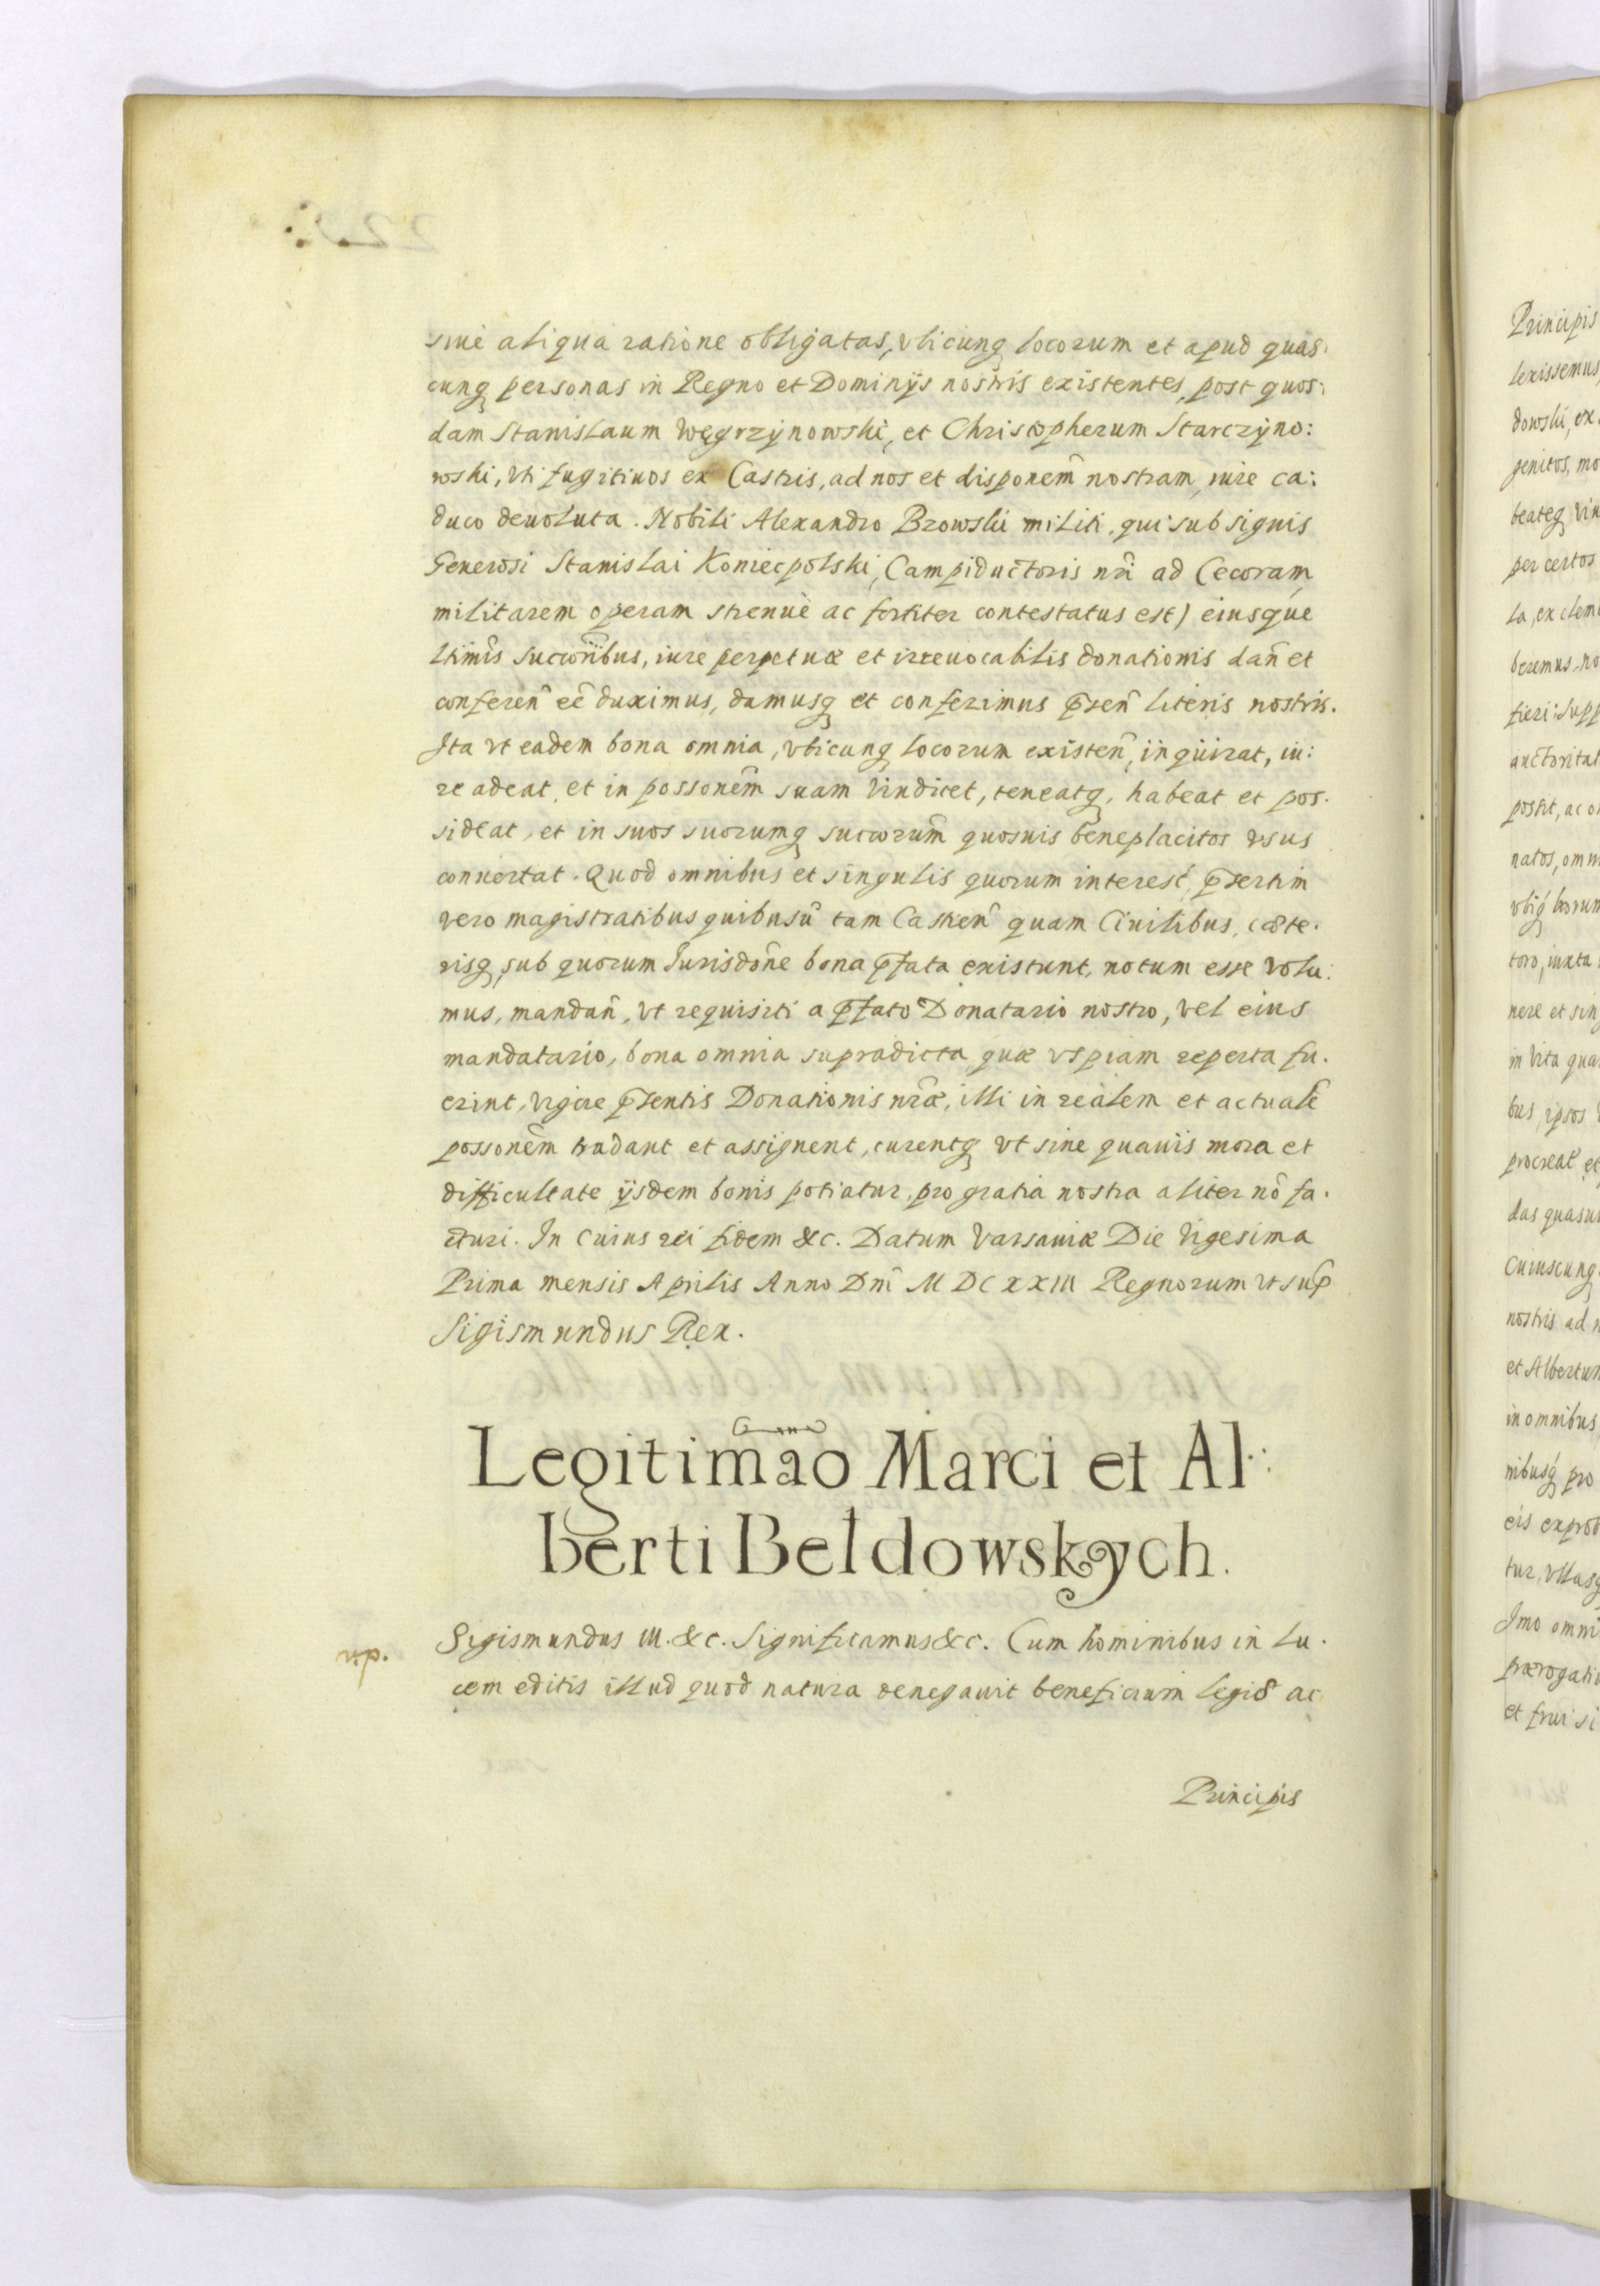 siuè aliqua ratione obligatas, vbicunq locorum et apud quas:
cunq personas in Regno et Dominijs nostris existentes, post quos:
dam Stanislaum Węgrzynowski, et Christopherum Starczyno:
wski, vti fugitiuos ex Castris, ad nos et disponem̃ nostram, iure ca:
duco deuoluta. Nobili Alexandro Brzowski militi, qui sub signis
Generosi Stanislai Koniecpolski, Campiductoris nri ad Cecoram
militarem operam strenuè ac fortiter contestatus est) eiusque
ltimis succoribus, iure perpetuæ et irreuocabilis donationis dañ et
conferen̂ eê duximus, damusq et conferimus p̃sen̂ literis nostris.
Ita vt eadem bona omnia, vbicunq locorum existen̂, inquirat, iu:
re adeat, et in possonem̃ suam vindicet, teneatq, habeat et pos:
sideat, et in suos suorumq succorum̃ quosuis beneplacitos vsus
conuertat. Quod omnibus et singulis quorum interest, p̃sertim
vero magistratibus quibusũ tam Castren̂ quam Ciuilibus, cæte:
risq, sub quorum Jurisdoñe bona p̃fata existunt, notum esse volu:
mus, mandañ, vt requisiti a p̃fato Donatario nostro, vel eius
mandatario, bona omnia supradicta, quæ vspiam reperta fu:
erint, vigore p̃sentis Donationis nræ, illi in realem et actualẽ
possonem̃ tradant et assignent, curentq vt sine quauis mora et
difficultate ijsdem bonis potiatur, pro gratia nostra aliter nõ fa:
cturi. In cuius rei fidem &c. Datum Varsauiæ Die Vigesima
Prima mensis Aprilis Anno Dni M DC XXIII Regnorum vt sup̃
Sigismundus Rex.
Legitim̃ao Marci et Al:
berti Bełdowskych.
v.p.
Sigismundus III. &c. Significamus &c. Cum hominibus in lu:
cem editis illud quod natura denegauit beneficium legis ac
Principis